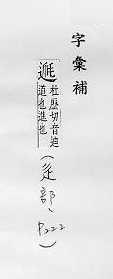 字彙補
杜歷切音迪
道也進也
(辵部, P222)